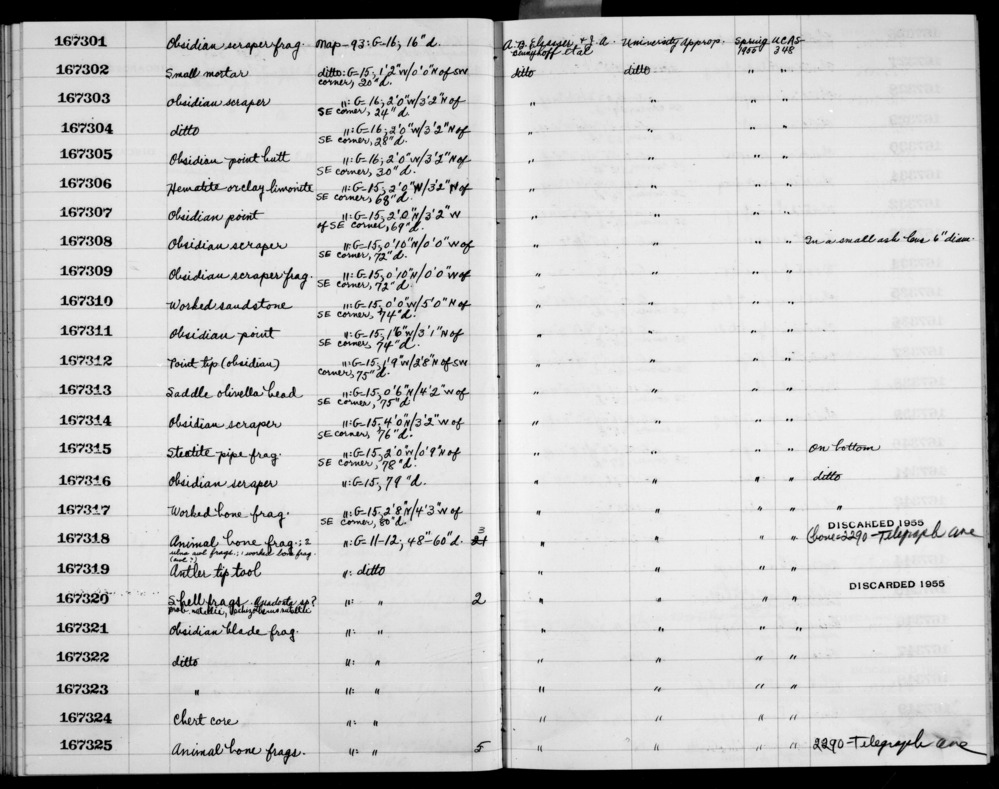 167301 Obsidian scraper frag. Map-93: G-16; 16"d. A. B. Elsasser & J. A. University Approp. Spring UCAS
Bennyhoff et al 1955 348
167302 Small mortar ditto: G-15; 1'2"W/0'0"N of SW ditto ditto " "
corner, 20"d.
167303 Obsidian scraper ": G-16; 2'0"W/3'2"N of " " " "
SE corner, 24"d.
167304 ditto ": G-16; 2'0"W/3'2"N of " " " "
SE corner, 28"d.
167305 Obsidian point butt ": G-16; 2'0"W/3'2"N of " " " "
SE corner, 30"d.
167306 Hematite or clay limonite ": G-15; 2'0"W/3'2"N of " " " "
SE corner, 68"d.
167307 Obsidian point ": G-15, 2'0"N/3'2"W " " " "
of SE corner, 69"d.
167308 Obsidian scraper ": G-15, 0'10"N/0'0"W of " " " " In a small ash lens 6" diam.
SE corner, 72"d.
167309 Obsidian scraper frag. ": G-15, 0'10"N/0'0"W of " " " "
SE corner, 72"d.
167310 Worked sandstone ": G-15, 0'0"W/5'0"N of " " " "
SE corner, 74"d.
167311 Obsidian point ": G-15, 1'6"W/3'1"N of " " " "
SE corner, 74"d.
167312 Point tip (obsidian) ": G-15, 1'9"W/3'8"N of SW " " " "
corner, 75"d.
167313 Saddle olivella bead ": G-15, 0'6"N/4'2"W of " " " "
SE corner, 75"d.
167314 Obsidian scraper ": G-15, 4'0"N/3'2"W of " " " "
SE corner, 76"d.
167315 Steatite pipe frag. ": G-15, 2'0"W/0'9"N of " " " " On bottom
SE corner, 78"d.
167316 Obsidian scraper ": G-15, 79"d. " " " " ditto
167317 Worked bone frag. ": G-15, 2'8"N/4'3"W of " " " " "
SE corner, 80"d.
DISCARDED 1955
167318 Animal bone frag.; 2 ": G-11-12; 48"-60"d. 3 " " " " (bone=2290-Telegraph Ave
ulna awl frags.; 1 worked bone frag.
(awl?)
167319 Antler tip tool ": ditto " " " "
DISCARDED 1955
167320 Shell frags. ": " 2 " " " "
prob.
167321 Obsidian blade frag. ": " " " " "
167322 ditto ": " " " " "
167323 " ": " " " " "
167324 Chert core ": " " " " "
167325 Animal bone frags. ": " 5 " " " " 2290-Telegraph Ave